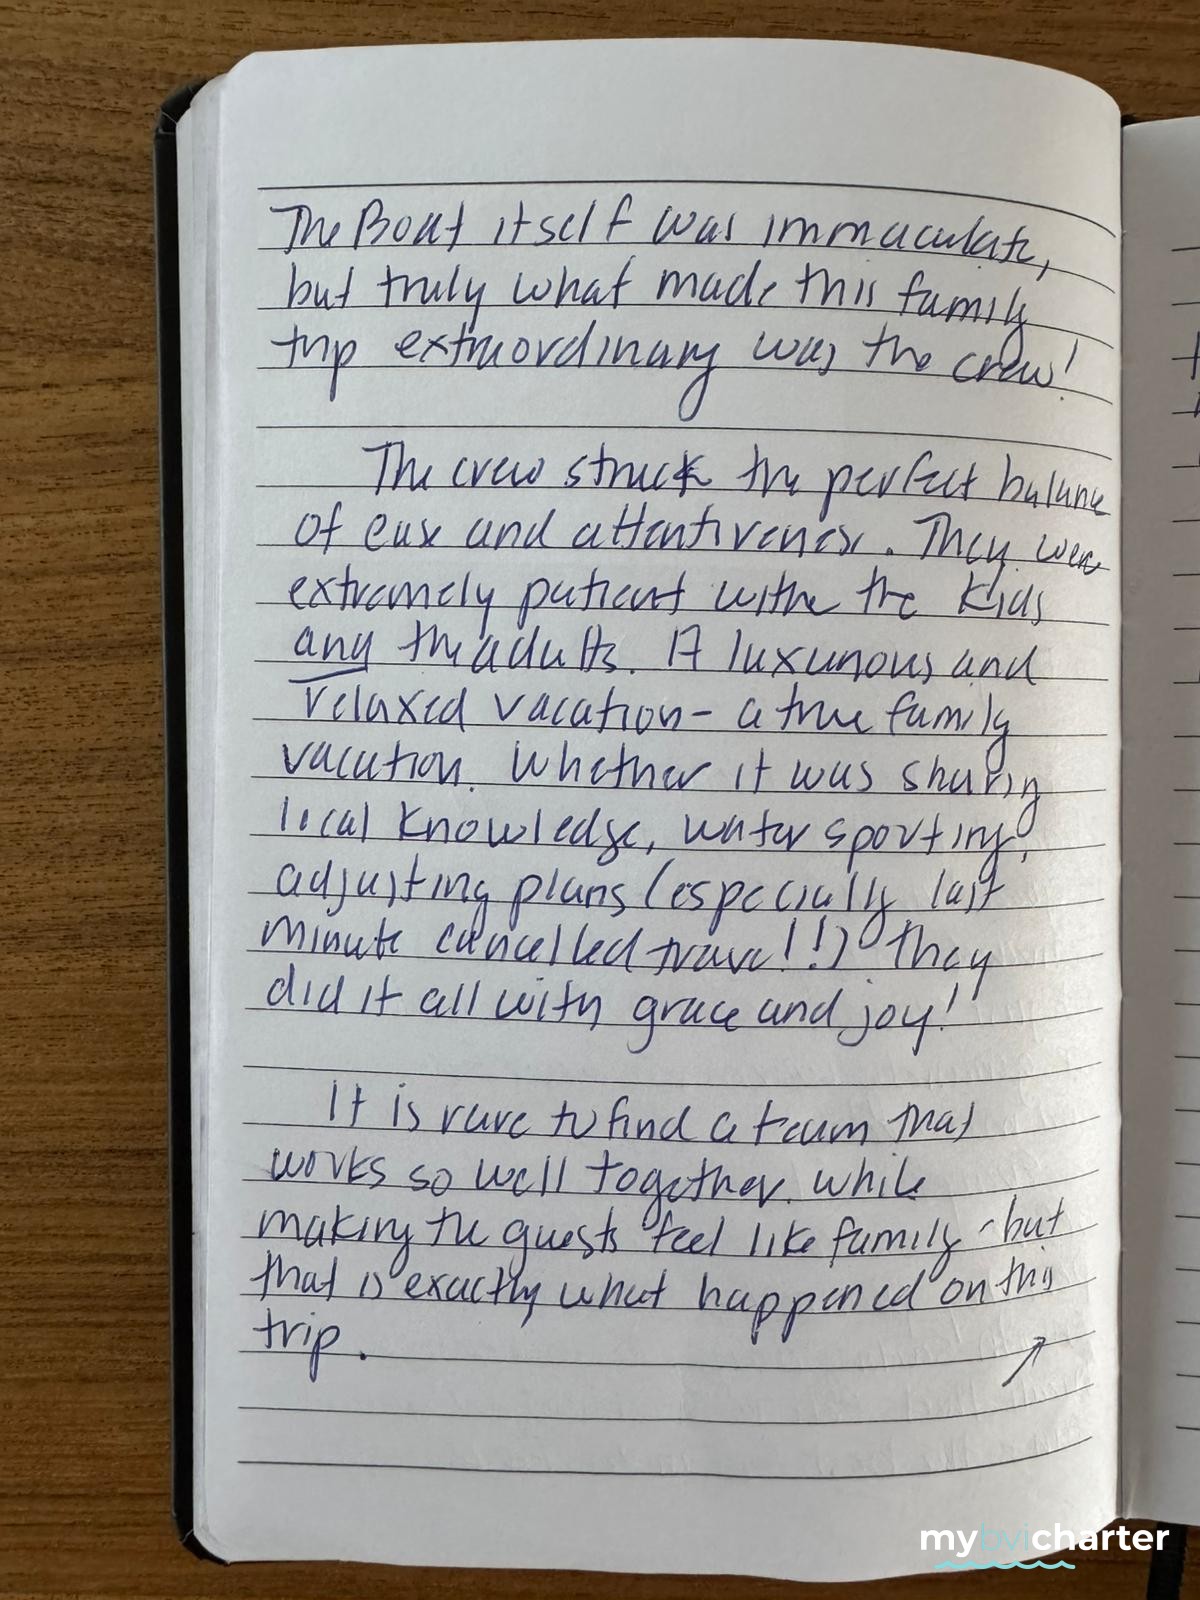 The Boat itself was immaculate,
but truly what made this family
trip extraordinary was the crew!
The crew struck the perfect balance
of ease and attentiveness. They were
extremely patient withe the kids
and the adults. A luxurious and
relaxed vacation - a true family
vacation. Whether it was sharing
local knowledge, water sporting,
adjusting plans (especially last
minute cancelled travel!!) they
did it all with grace and joy!
It is rare to find a team that
works so well together while
making the guests feel like family - but
that is exactly what happened on this
trip.
mybvicharter